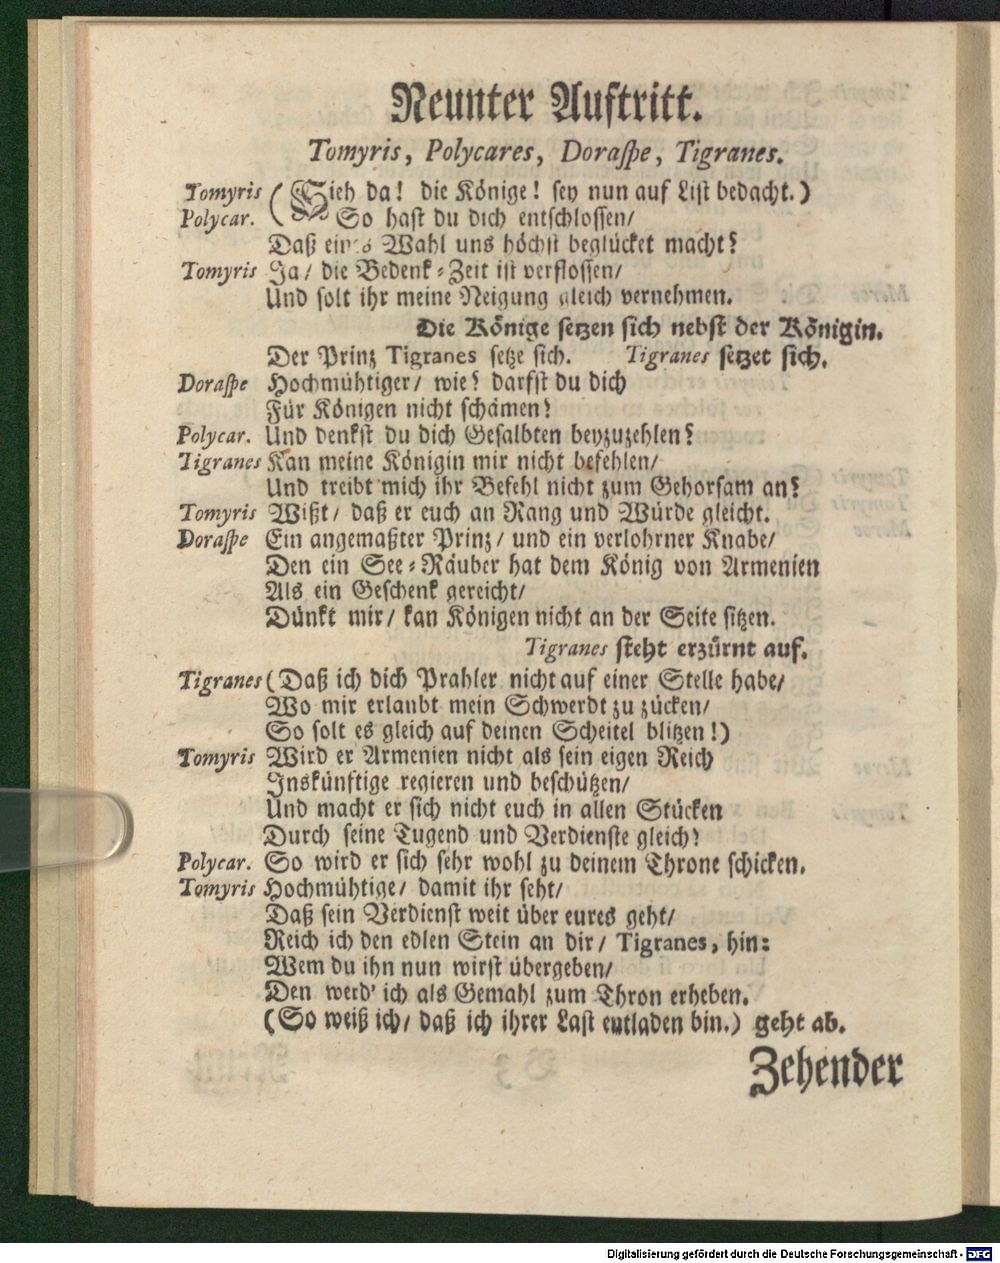 Neunter Auftritt.
Tomyris, Polycares, Doraspe, Tigranes.
Tomyris (Sieh da! die Könige! sey nun auf List bedacht.)
Polycar. ( So hast du dich entschlossen/
Daß eines Wahl uns höchst beglücket macht?
Tomyris Ja/ die Bedenk-Zeit ist verflossen/
Und solt ihr meine Neigung gleich vernehmen.
Die Könige setzen sich nebst der Königin.
Der Prinz Tigranes setze sich. Tigranes setzet sich.
Doraspe Hochmühtiger/ wie? darfst du dich
Für Königen nicht schämen?
Polycar. Und denkst du dich Gesalbten beyzuzehlen?
Tigranes Kan meine Königin mir nicht befehlen/
Und treibt mich ihr Befehl nicht zum Gehorsam an?
Tomyris Wißt/ daß er euch an Rang und Würde gleicht.
Doraspe Ein angemaßter Prinz/ und ein verlohrner Knabe/
Den ein See-Räuber hat dem König von Armenien
Als ein Geschenk gereicht/
Dünkt mir/ kan Königen nicht an der Seite sitzen.
Tigranes steht erzürnt auf.
Tigranes (Daß ich dich Prahler nicht auf einer Stelle habe/
Wo mir erlaubt mein Schwerdt zu zücken/
So solt es gleich auf deinen Scheitel blitzen!)
Tomyris Wird er Armenien nicht als sein eigen Reich
Inskünftige regieren und beschützen/
Und macht er sich nicht euch in allen Stücken
Durch seine Tugend und Verdienste gleich?
Polycar. So wird er sich sehr wohl zu deinem Throne schicken.
Tomyris Hochmühtige/ damit ihr seht/
Daß sein Verdienst weit über eures geht/
Reich ich den edlen Stein an dir/ Tigranes, hin:
Wem du ihn nun wirst übergeben/
Den werd' ich als Gemahl zum Thron erheben.
(So weiß ich/ daß ich ihrer Last entladen bin.) geht ab.
Zehender
Digitalisierung gefördert durch die Deutsche Forschungsgemeinschaft - DFG